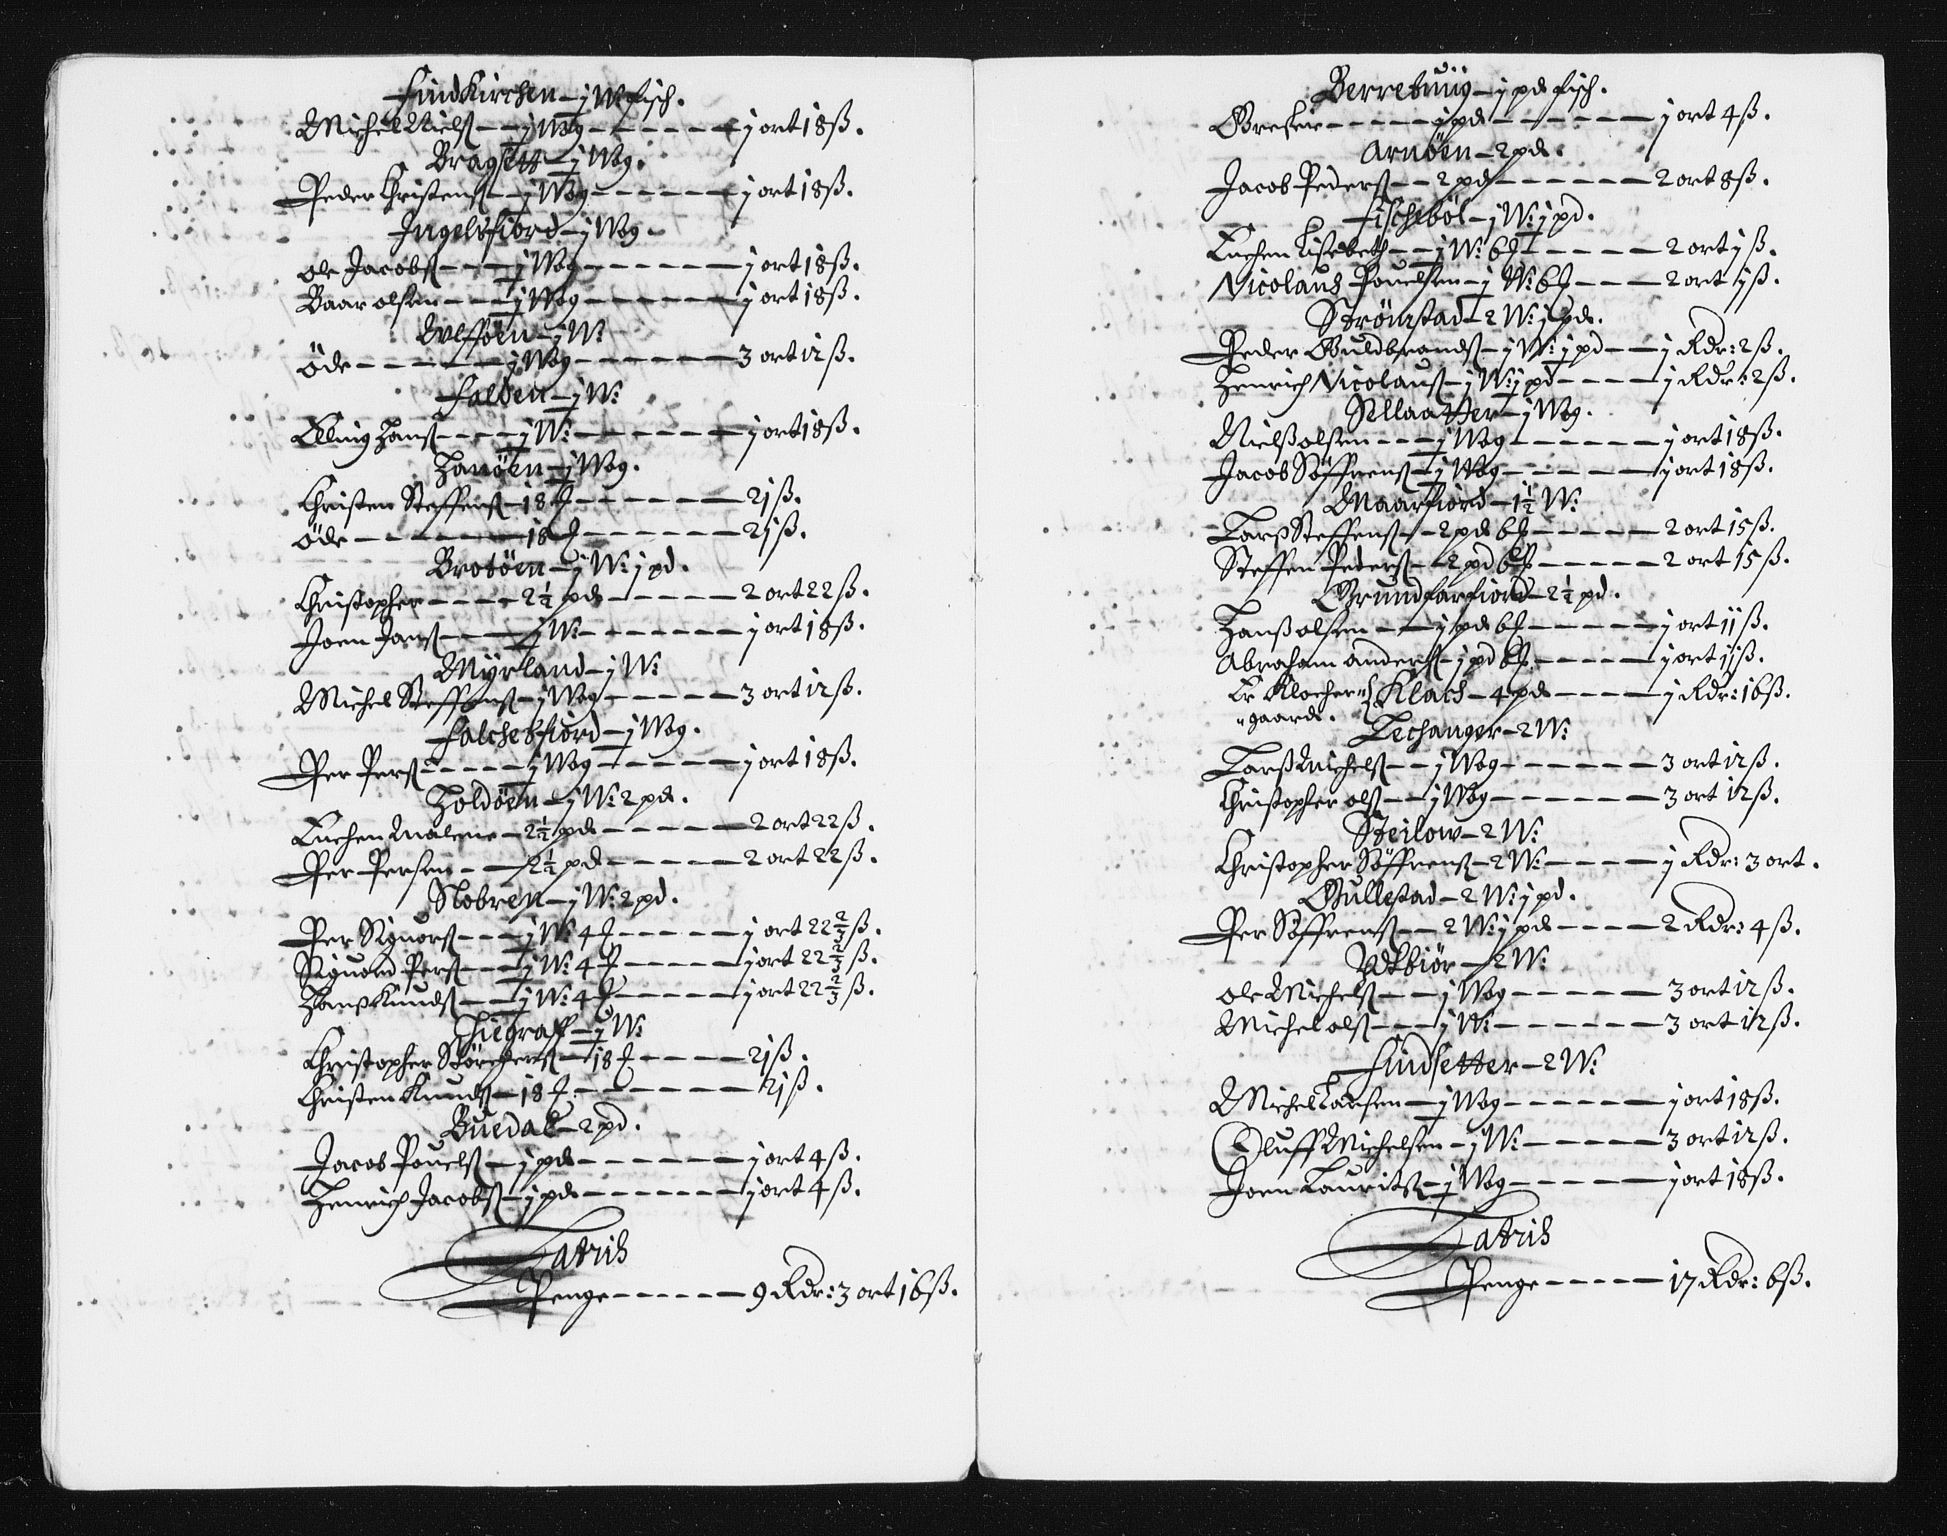 Findkirchen – j W: fisch.
Michel Nielß – – j Wog – – – – – – j ort 18 ß.
Bragsett – j Wog.
Peder Christenß – j Wog – – – – – j ort 18 ß.
Ingelsfiord – j Wog
Ole Jacobß – – – j Wog – – – – – – j ort 18 ß.
Baar olsen – – – j Wog – – – – – – j ort 18 ß.
Ulfföen – j W:
Öde – – – – – – j Wog – – – – – – 3 ort 12 ß.
Falden – j W:
Elling Hanß – – – – j W: – – – – – – j ort 18 ß.
Hanöen – j Wog.
Christen Steffenß – 18 – – – – – – 21 ß.
Öde – – – – – – 18 – – – – – – 21 ß.
Brotöen – j W: j pd.
Christopher – – – – 2½ pd – – – – – 2 ort 22 ß.
Joen Janß – – – j W: – – – – – – j ort 18 ß.
Myrland – j W:
Michel Steffenß – j Wog – – – – – 3 ort 12 ß.
Falchesfiord – j Wog.
Per Perß – – – – – j Wog – – – – – j ort 18 ß.
Holdöen – j W: 2 pd.
Enchen Malene – 2½ pd – – – – – 2 ort 22 ß.
Per Persen – – 2½ pd – – – – – 2 ort 22 ß.
Slobren – j W: 2 pd.
Per Siguorß – – – j W: 4 – – – – – j ort 22 ⅔ ß.
Siguord Perß – – – j W: 4 – – – – – j ort 22 ⅔ ß.
Hanß Knudß – – – j W: 4 – – – – – j ort 22 ⅔ ß.
Tiegraff – j W:
Christopher Störchersß – 18 – – – – 21 ß.
Christen Knudß – 18 – – – – – – 21 ß.
Buedal – 2 pd.
Jacob Pouelß – j pd – – – – – – j ort 4 ß.
Henrich Jacobß – j pd – – – – – – j ort 4 ß.
Latris
Penge – – – – – – 9 Rdr: 3 ort 16 ß.
Berretuiig – j pd fisch.
Greker – – – – – j pd – – – – – – j ort 4 ß.
Arnöen – 2 pd.
Jacob Pederß – – 2 pd – – – – – – 2 ort 8 ß.
Fischeböl – j W: j pd.
Enchen Lisebeth – – j W: 6 – – – – – 2 ort j ß.
Nicolaus Pouelsen – j W: 6 – – – 2 ort jß.
Strömstad – 2 W: j pd.
Peder Guldbrandß – j W: j pd – – j Rdr: 2 ß.
Henrich Nicolausß – j W: j pd – – – j Rdr: 2 ß.
Sllaatter – j Wog.
Nielß olsen – – – j Wog – – – – – – j ort 18 ß.
Jacob Söffrenß – j Wog – – – – – – j ort 18 ß.
Maarfiord – 1½ W:
Larß Steffenß – – 2 pd 6 – – – – – 2 ort 15 ß.
Steffen Pederß – 2 pd 6 – – – – – 2 ort 15 ß.
Grundfarfiord – 2½ pd.
Hanß olsen – – j pd 6 – – – – – j ort jj ß.
Abraham anderß – j pd 6 – – – – – j ort jj ß.
Er Klocher= Klach – 4 pd – – – – j Rdr: 16 ß.
=gaard.
Lechanger – 2 W:
Larß Michelß – – j Wog – – – – – – 3 ort 12 ß.
Christopher olß – – j Wog – – – – – – 3 ort 12 ß.
Steilow – 2 W:
Christopher Söffrenß – 2 W: – – – – j Rdr: 3 ort.
Gullestad – 2 W: j pd.
Per Söffrenß – – 2 W: j pd – – – – 2 Rdr: 4 ß.
Udkbiör – 2 W:
Ole Michelß – – – j Wog – – – – – – 3 ort 12 ß.
Michel olß – – – j W: – – – – – – 3 ort 12 ß.
Findsetter – 2 W:
Michel Larsen – j Wog – – – – – – j ort 18 ß.
Oluff Michelsen – j W: – – – – – 3 ort 12 ß.
Joen Lauritß – j Wog – – – – – j ort 18 ß.
Latris
Penge – – – – – 17 Rdr: 6 ß.